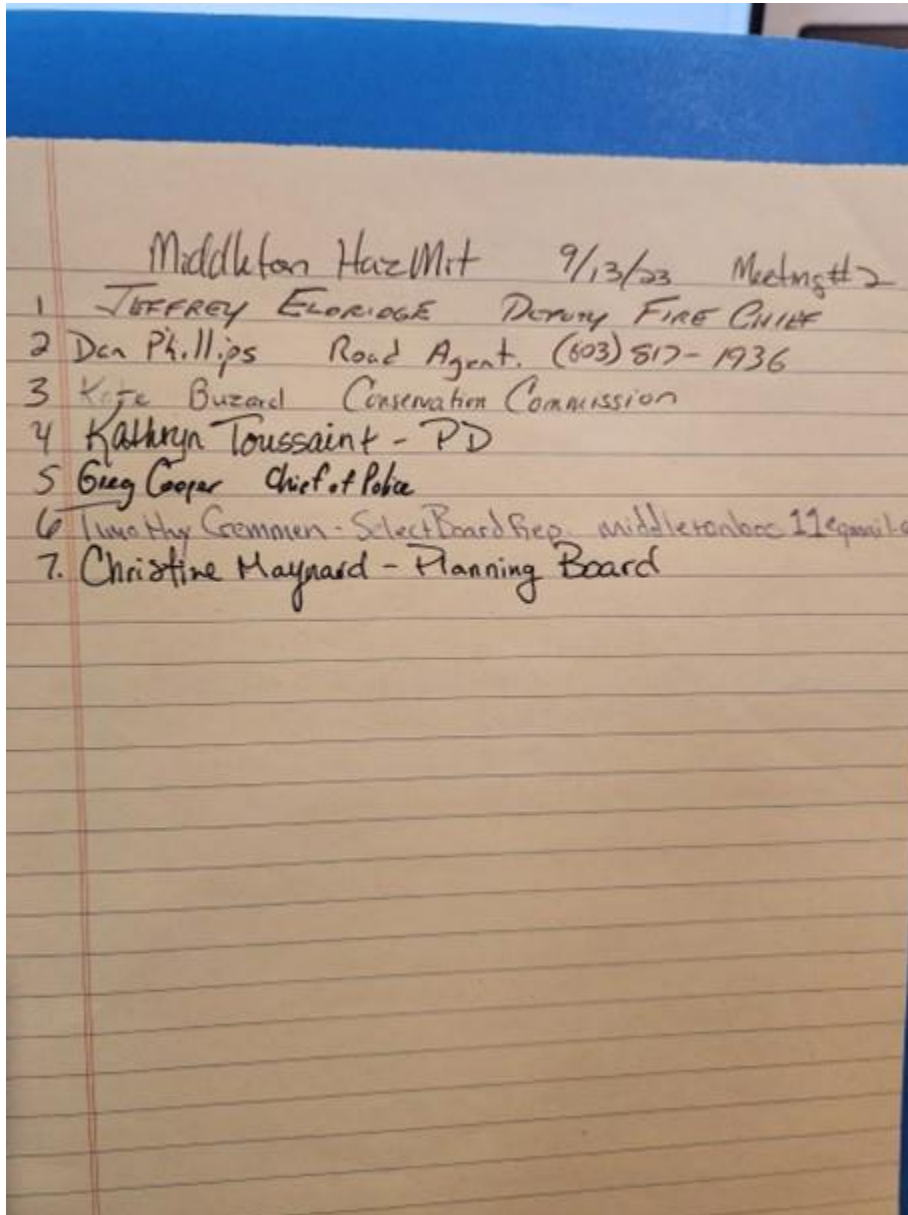 Middleton HazMit 9/13/23 Meeting #2
1 JEFFREY ELDRIDGE DEPUTY FIRE CHIEF
2 Dan Phillips Road Agent. (603) 817-1936
3 Kate Buzard Conservation Commission
4 Kathryn Toussaint - PD
5 Greg Cooper Chief of Police
6 Timothy - Select Board Rep.
7. Christine Maynard - Planning Board